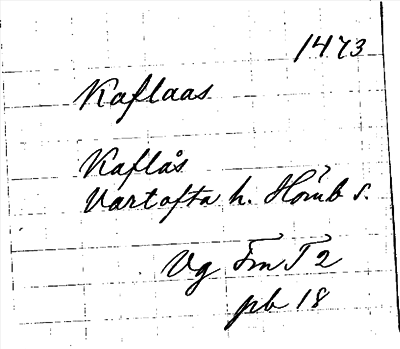 1473
Kaflaas
Kaflås
Vartofta h. Hömb s.
Vg FmT 2
pb 18